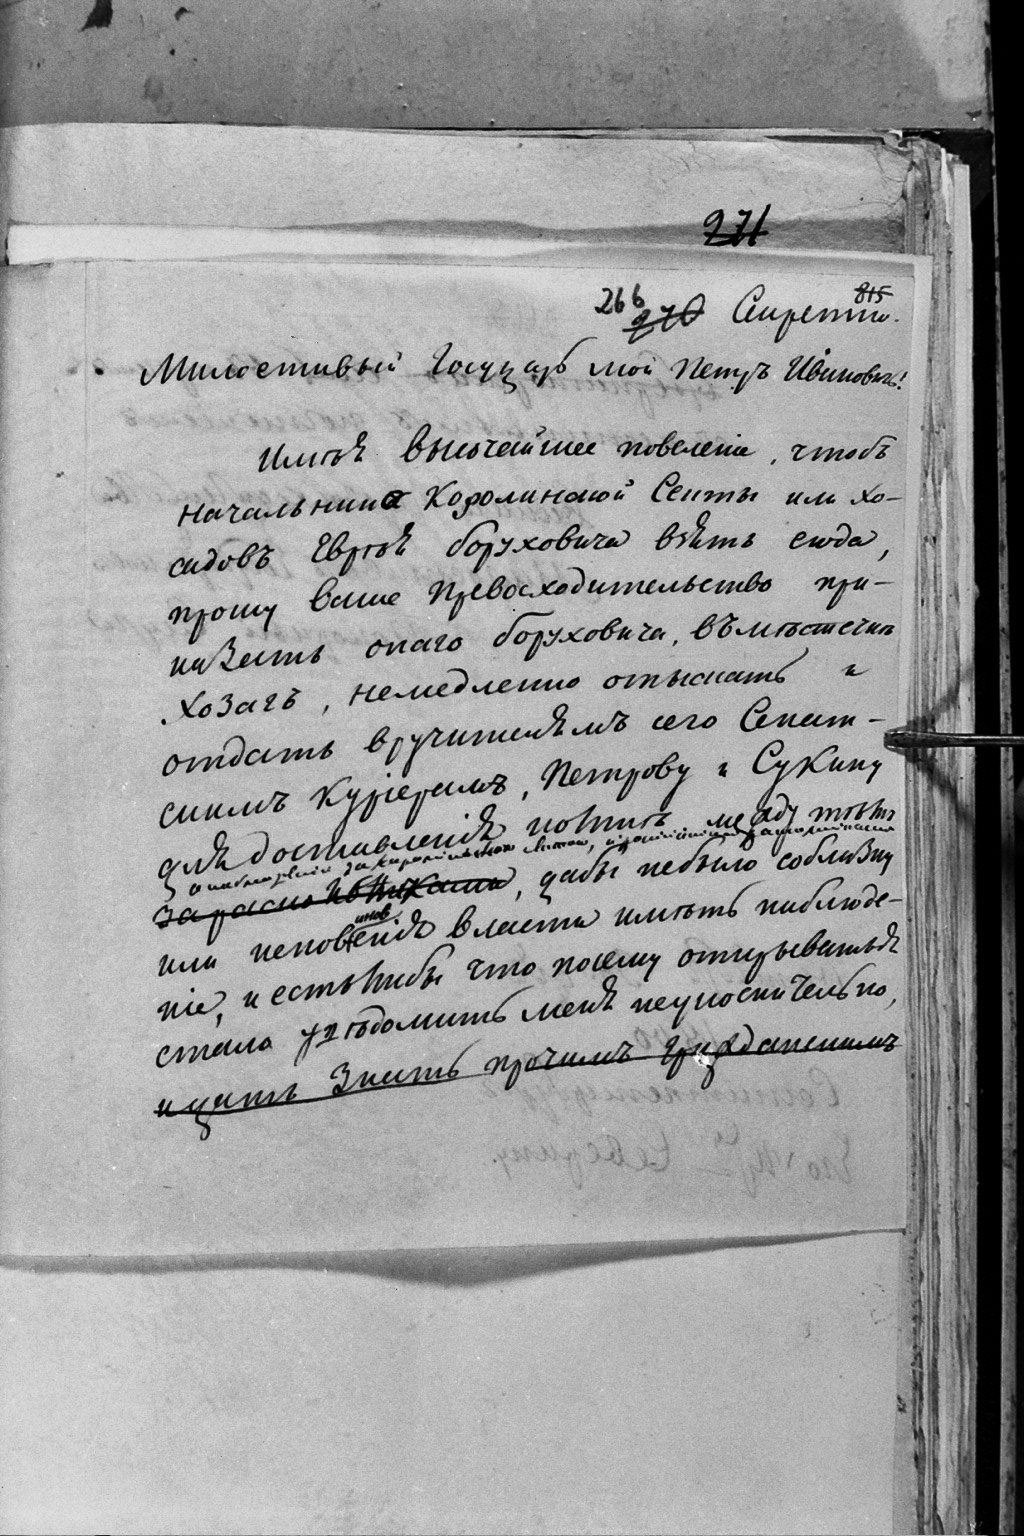 271
266 270 Секретно. 815
Милостивый Государь мой Петръ Ивановичь!
Имѣя высочайшее повеленіе, чтобъ
начальника Каролинской Секты или Хо-
сидовъ Еврея Боруховича взять сюда,
прошу ваше Превосходительство при-
казать онаго Боруховича, въ мѣстечкѣ
Хозагъ, немедленно отыскать и
отдать вручителямъ сего Сенат-
скимъ Курьерамъ, Петрову и Сукину
для доставленія ко мнѣ между тѣмъ
о наблюденіи за каролинскою сектою,
за раско никами, дабы небыло соблазну
или неповиновенія власти имѣть наблюде-
ніе, и естьлибы что посему открываться
стало увѣдомить меня неукоснительно,
и дать знать прочимъ Гражданскимъ